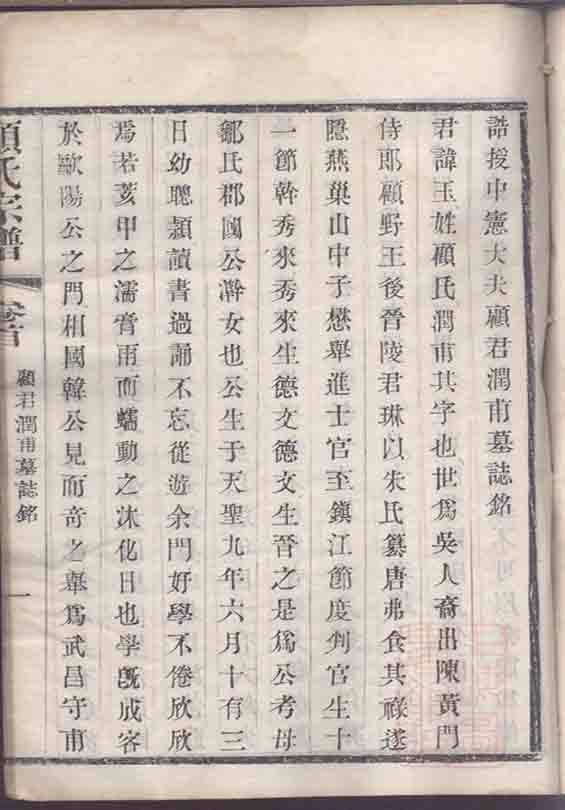 誥授中憲大夫顧君潤甫墓誌銘
君諱玉姓顧氏潤甫其字也世爲吳人裔出陳黃門
侍郎顧野王後晉陵君琳以朱氏纂唐弗食其祿遂
隱燕巢山中子懋舉進士官至鎮江節度判官生十
一節幹秀來秀來生德文德文生晉之是爲公考母
鄒氏郡國公澣女也公生于天聖九年六月十有三
日幼聰頴讀書過誦不忘從遊余門好學不倦欣欣
焉若荄甲之濡膏雨而蠕動之沐化日也學旣成客
於歐陽公之門相國韓公見而奇之舉爲武昌守甫
顧氏宗譜
卷首
顧君潤甫墓誌銘
一